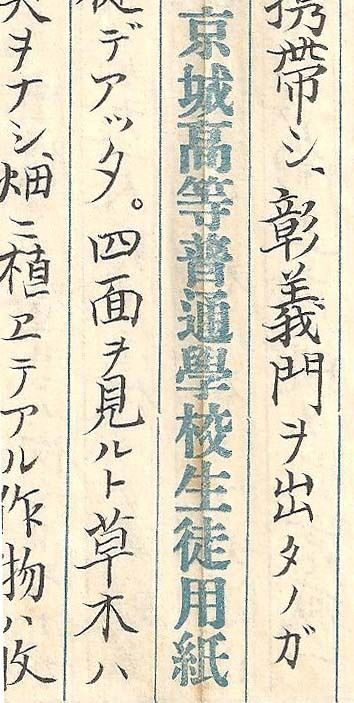 携帯シ、彰義門ヲ出タノガ
京城高等普通學校生徒用紙
デアッタ。四面ヲ見ルト草木ハ
ヲナシ、畑ニ植ヱテアル作物ハ收